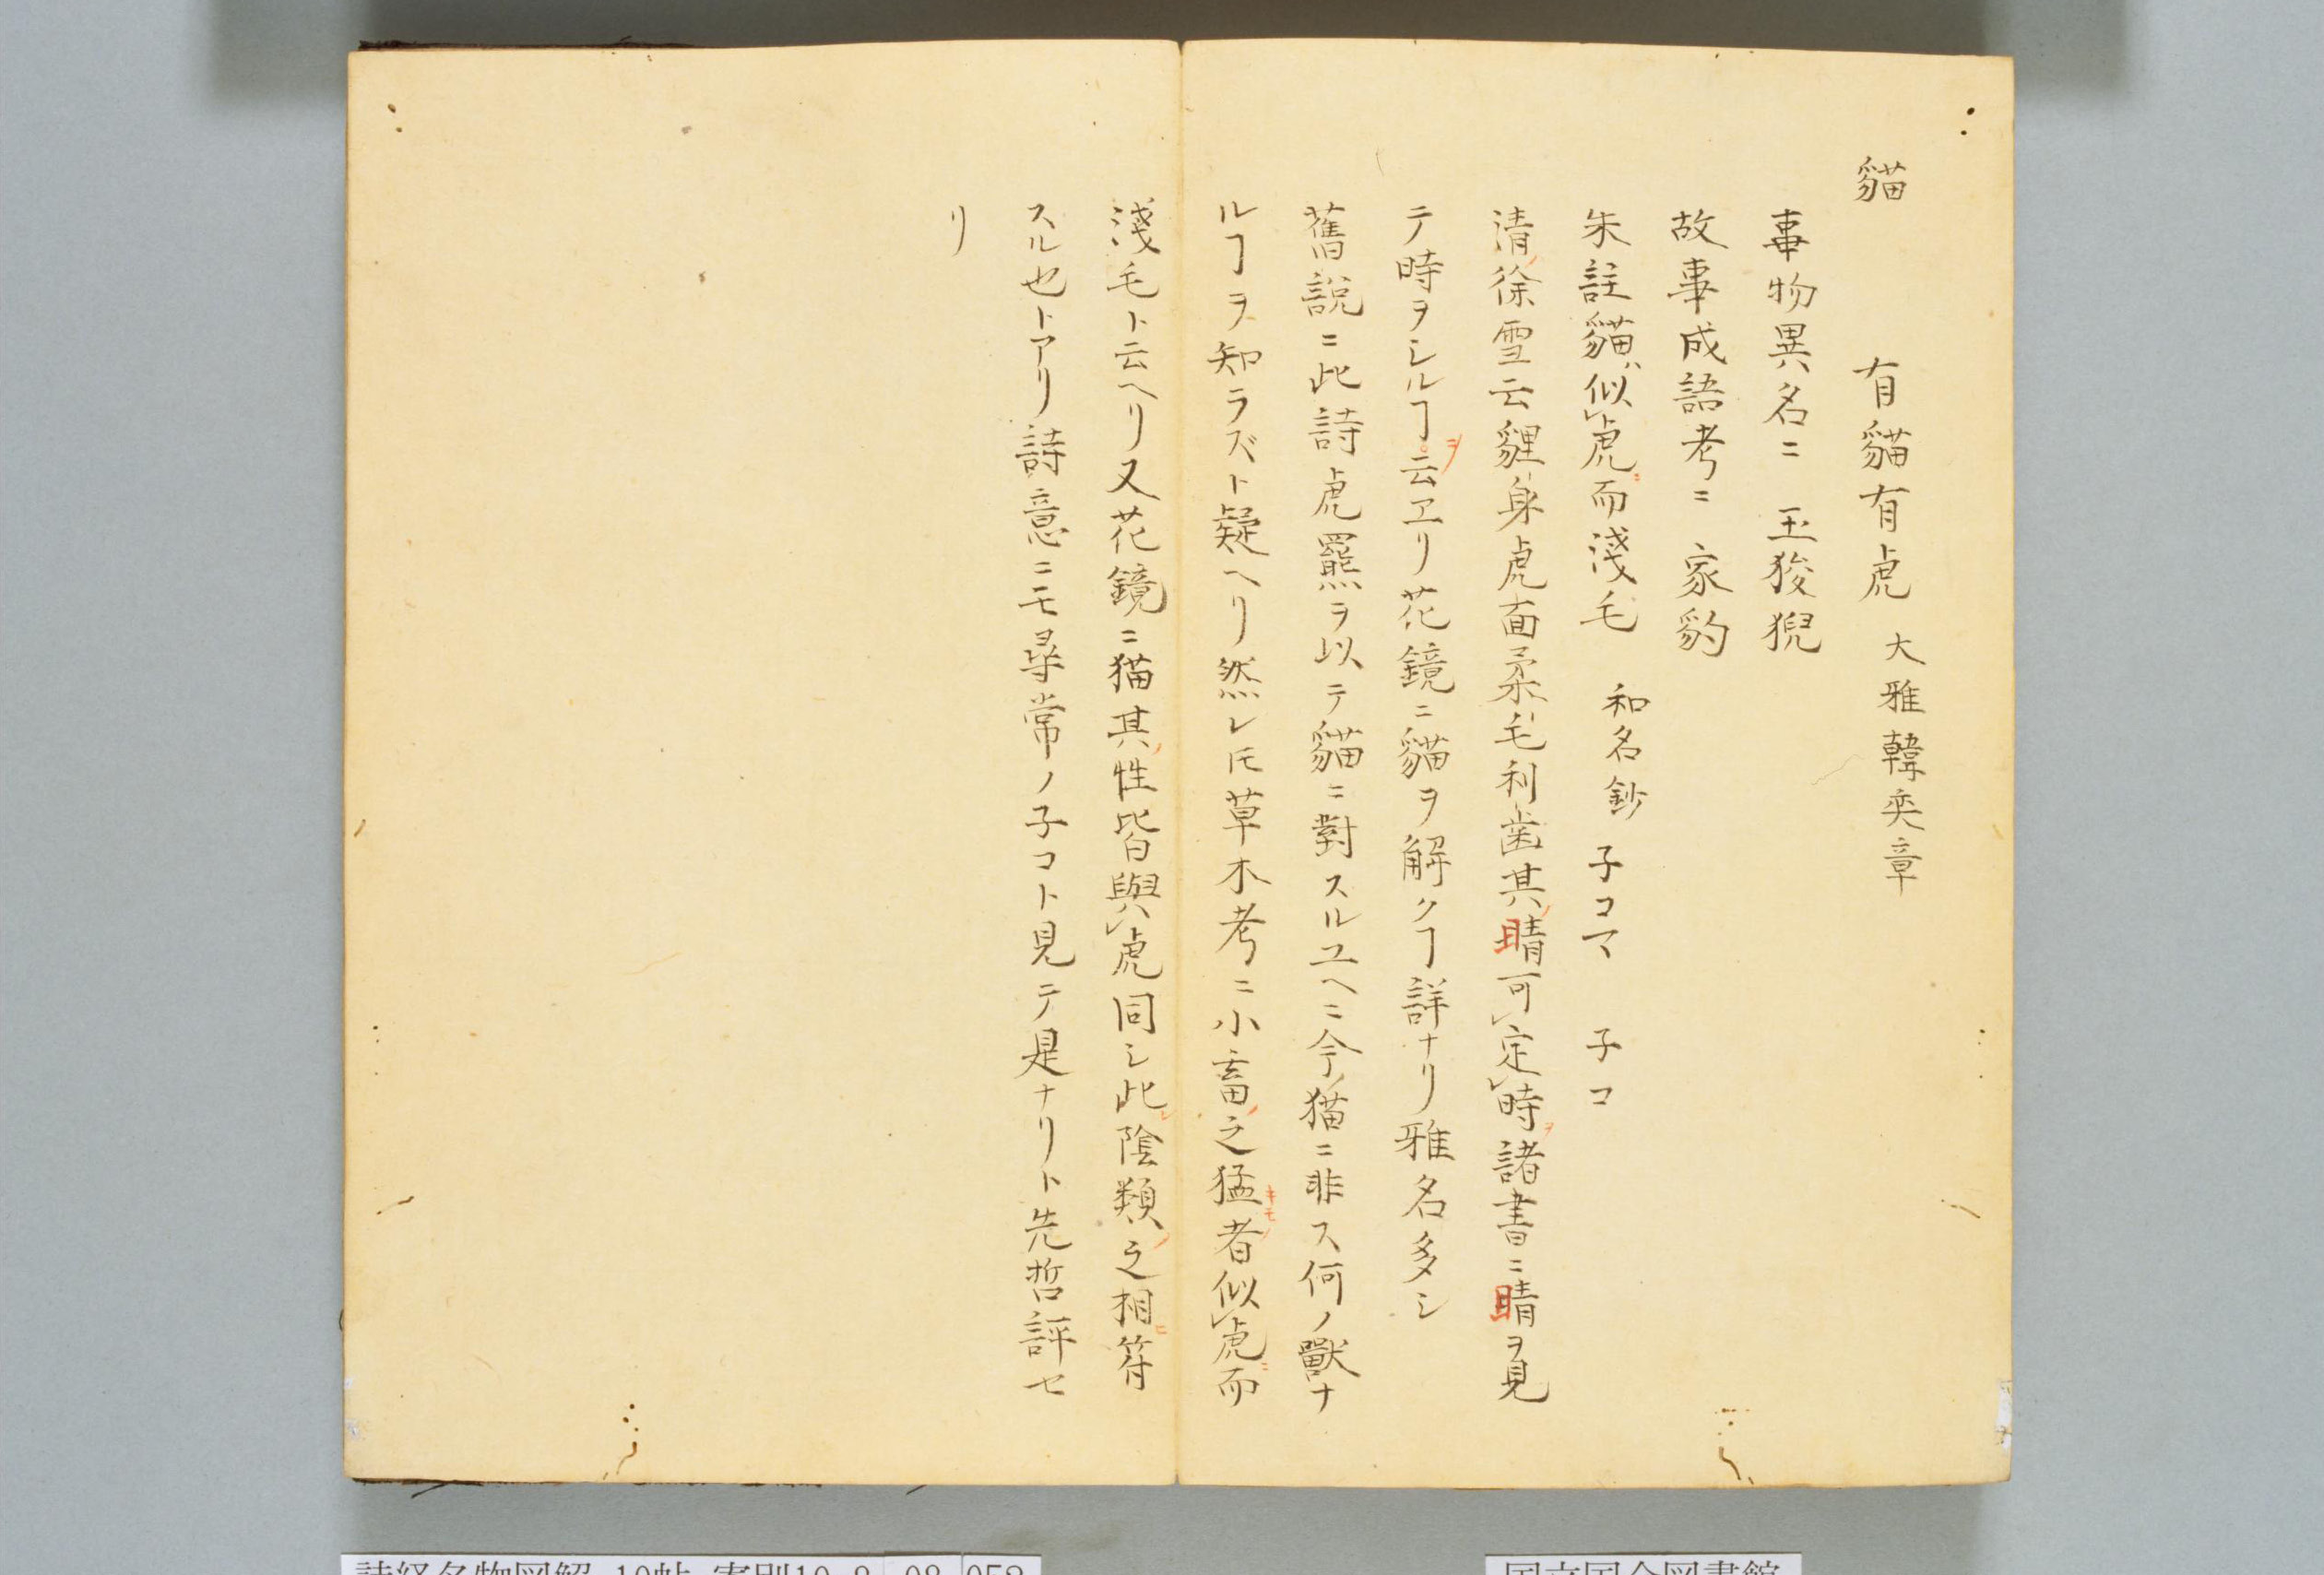 貓　有貓有虎　大雅韓奕章
事物異名ニ　玉狻猊
故事成語考ニ　家豹
朱註貓ハ似レ虎ニ而淺毛　和名鈔　子コマ　子コ
清ノ徐雪云貍身虎面柔毛利歯其ノ睛可レ定レ時ヲ諸書ニ睛ヲ見
テ時ヲシルヿヲ云エリ花鏡ニ貓ヲ解クヿ詳ナリ雅名多シ
舊說ニ此詩虎羆ヲ以テ貓ニ對スルユヘニ今ノ猫ニ非ス何ノ獸ナ
ルヿヲ知ラズト疑ヘリ然レ𪜈草木考ニ小畜ノ之猛キモノ者似レ虎ニ而
淺毛ト云ヘリ又花鏡ニ猫其ノ性皆與レ虎同シ此レ陰類ノ之相ヒ符
スル也トアリ詩意ニモ尋常ノ子コト見テ是ナリト先哲評セ
リ
詩経名物図解 10帖 寄別10-8 08 058
国立国会図書館